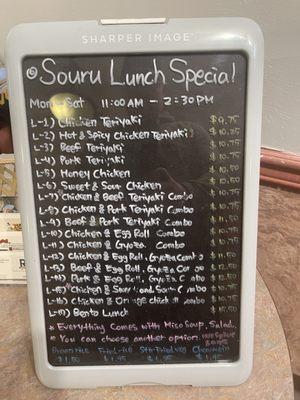 SHARPER IMAGE
Souru Lunch Special
Mon-Sat 11:00AM - 2:30PM
L-1) Chicken Teriyaki $9.75
L-2) Hot & Spicy Chicken Teriyaki $10.25
L-3) Beef Teriyaki $10.75
L-4) Pork Teriyaki
L-5) Honey Chicken $10.50
L-6) Sweet & Sour Chicken $10.50
L-7) Chicken & Beef Teriyaki Combo
L-8) Chicken & Pork Teriyaki Combo
L-9) Beef & Pork Teriyaki Combo $11.50
L-10) Chicken & Egg Roll Combo
L-11) Chicken & Gyoza Combo $10.75
L-12) Chicken & Egg Roll, Gyoza Combo
L-13) Beef & Egg Roll, Gyoza Combo
L-14) Pork & Egg Roll, Gyoza Combo
L-15) Chicken & Sweet and Sour Combo
L-16) Chicken & Orange chicken Combo
L-17) Bento Lunch
* Everything comes with Miso Soup, Salad.
* You can choose another option
Brown rice Fried rice Stir-Fried veg Chowmein
$1.50 $1.95 $1.95 $1.95